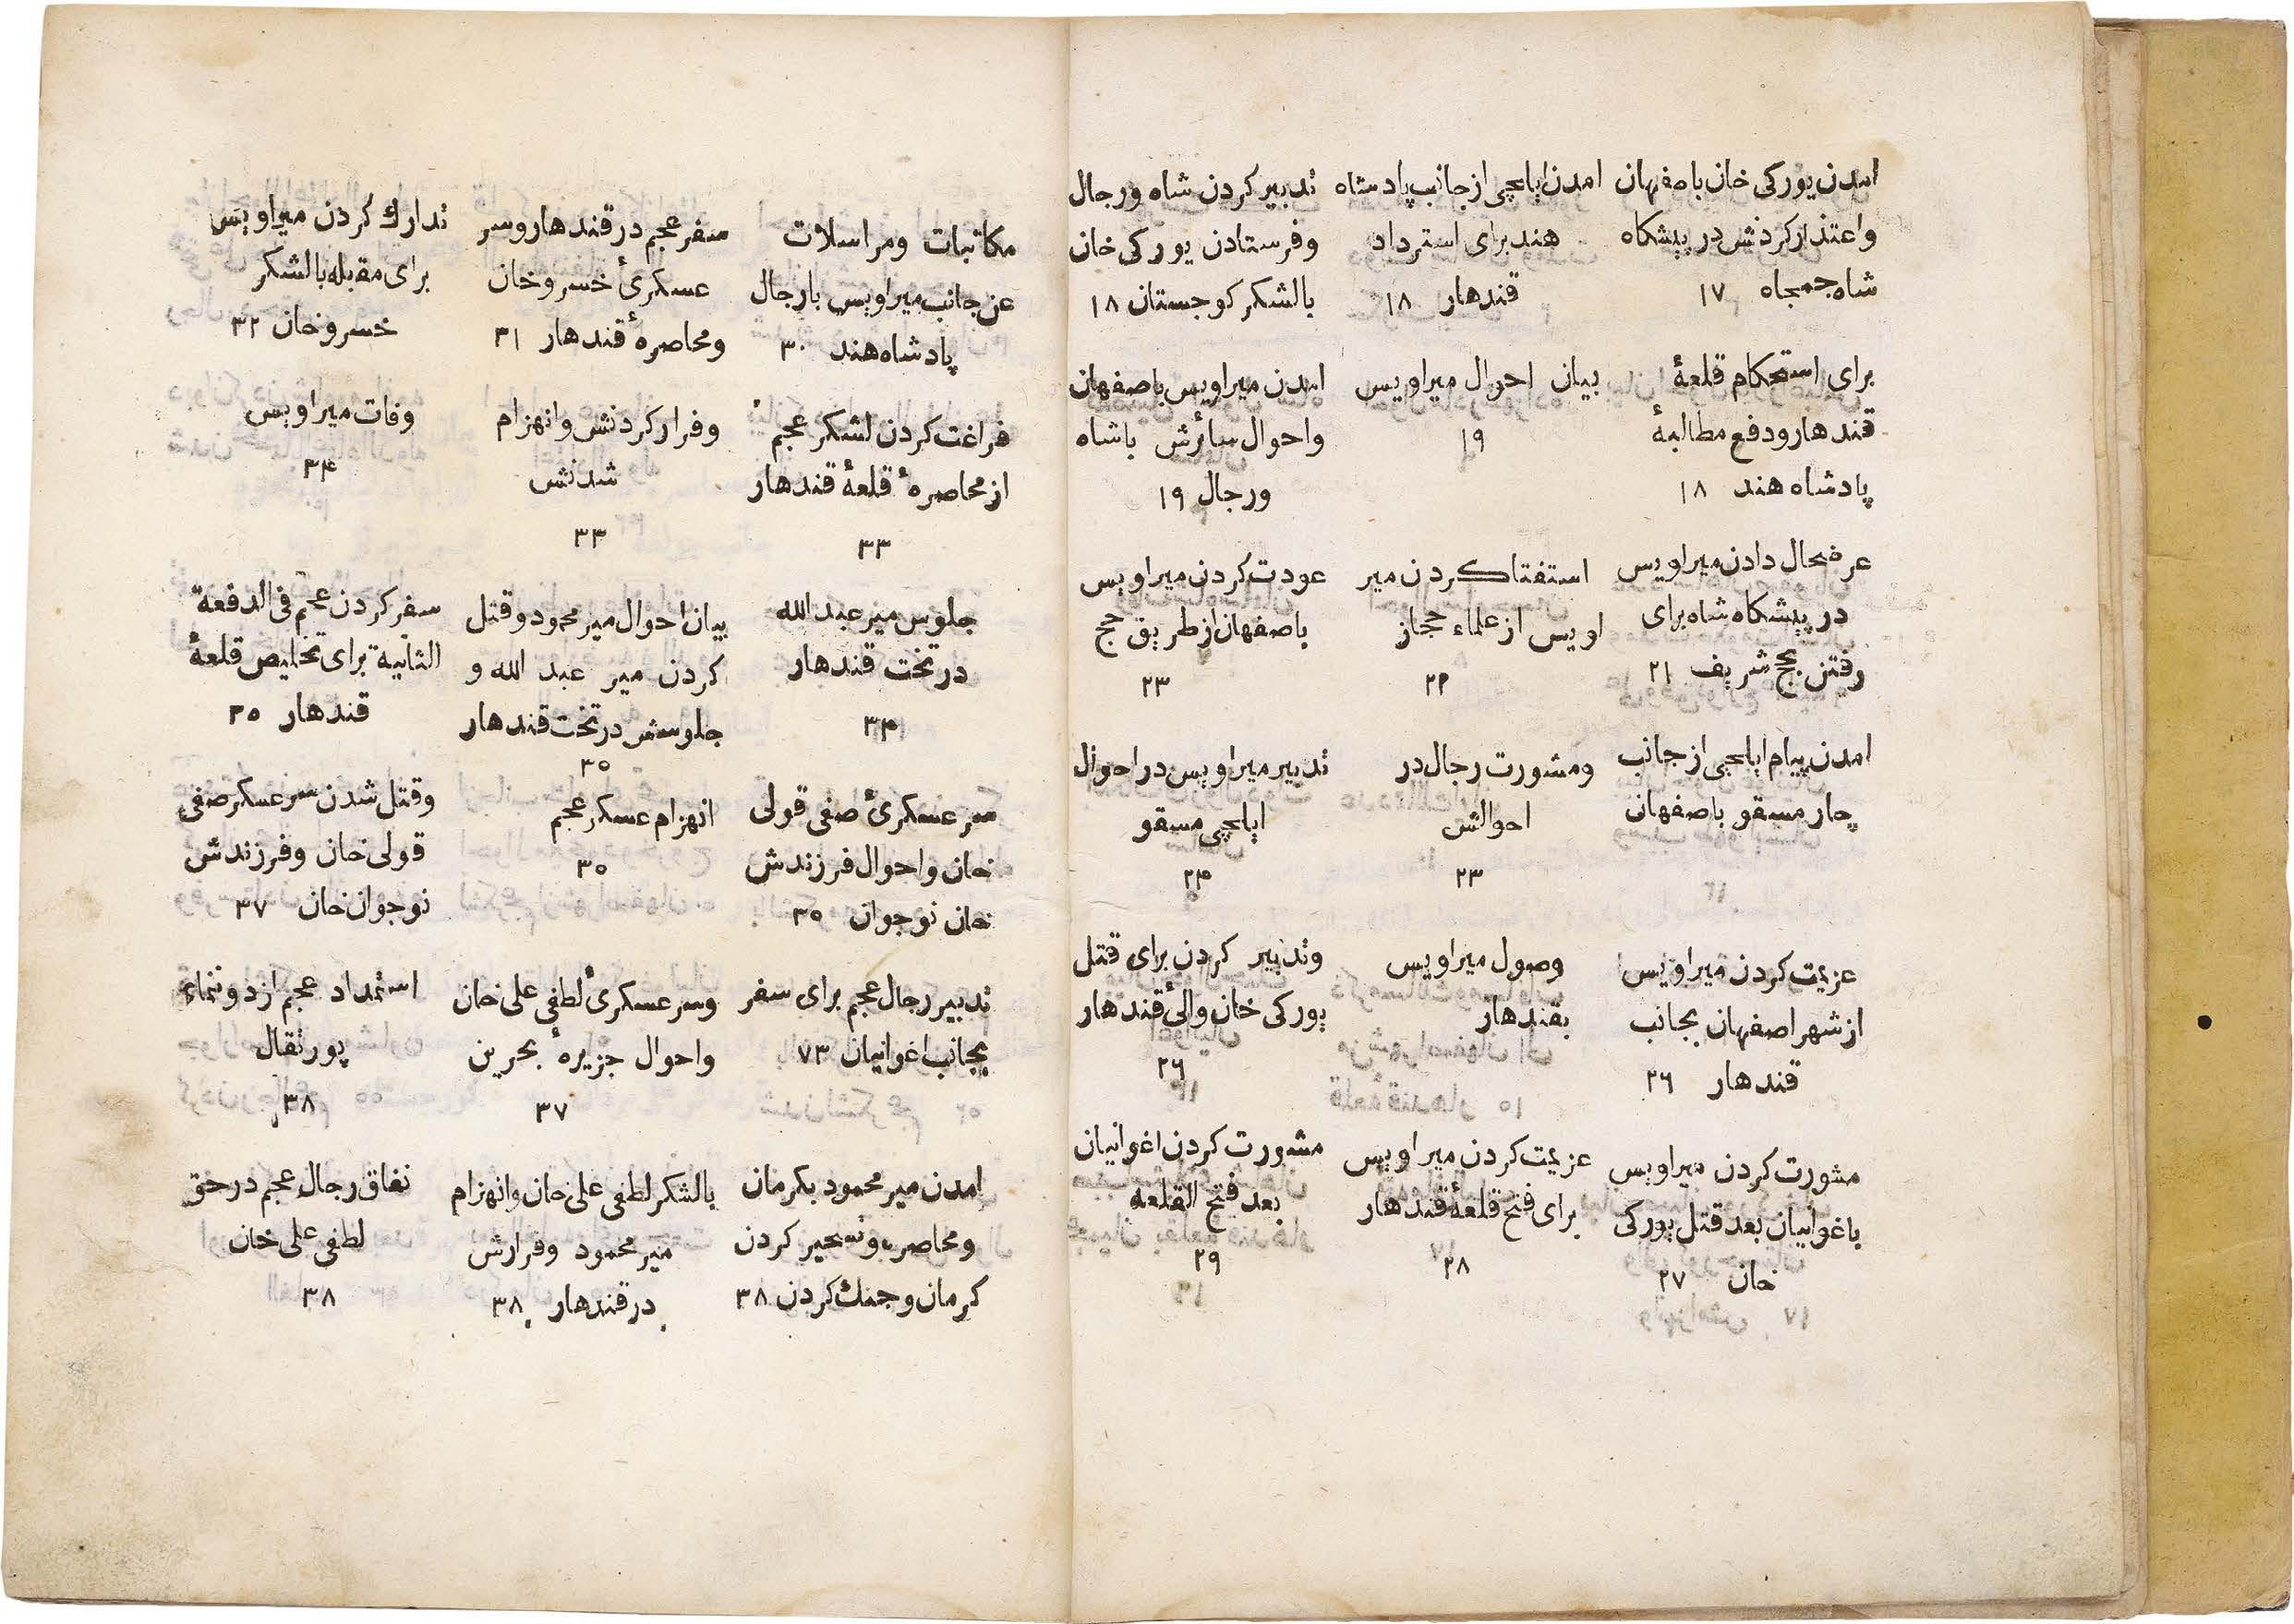 امدن یورکی خان باصفهان
واعتذار کردنش در پیشکاه
شاه جمجاه ١٧
امدن ایلچی از جانب پادشاه
هند برای استرداد
قندهار ١٨
تدبیر کردن شاه ورجال
وفرستادن یورکی خان
بالشکر کوجستان ١٨
برای استحکام قلعۀ
قندهار ودفع مطالبۀ
پادشاه هند ١٨
بیان احوال میراویس
١٩
امدن میراویس باصفهان
واحوال سائرش باشاه
ورجال ١٩
عرضحال دادن میراویس
در پیشکاه شاه برای
رفتن بحج شریف ٢١
استفتا کردن میر
اویس از علماء حجاز
٢٢
عودت کردن میراویس
باصفهان از طریق حج
٢٣
امدن پیام ایلچی از جانب
چار مسقو باصفهان
ومشورت رجال در
احوالش
٢٣
تدبیر میراویس در احوال
ایلچی مسقو
٢٤
عزیمت کردن میراویس
از شهر اصفهان بجانب
قندهار ٢٦
وصول میراویس
بقندهار
وتدبیر کردن برای قتل
یورکی خان والئ قندهار
٢٦
مشورت کردن میراویس
باغوانیان بعد قتل یورکی
خان ٢٧
عزیمت کردن میراویس
برای فتح قلعۀ قندهار
٢٨
مشورت کردن اغوانیان
بعد فتح القلعه
٢٩
مکاتبات ومراسلات
عن جانب میراویس بارجال
پادشاه هند ٣٠
سفر عجم در قندهار وسر
عسکرئ خسرو خان
ومحاصرۀ قندهار ٣١
تدارك کردن میراویس
برای مقبله بالشکر
خسرو خان ٣٢
فراغت کردن لشکر عجم
از محاصرۀ قلعۀ قندهار
٣٣
وفرار کردنش وانهزام
شدنش
٣٣
وفات میراویس
٣٤
جلوس میر عبد الله
در تخت قندهار
٣٤
بیان احوال میر محمود وقتل
کردن میر عبد الله و
جلوسش در تخت قندهار
٣٥
سفر کردن عجم فی الدفعة
الثانیة برای تخلیص قلعۀ
قندهار ٣٥
سر عسکرئ صفی قولی
خان واحوال فرزندش
خان نوجوان ٣٥
انهزام عسکر عجم
٣٥
وقتل شدن سر عسکر صفی
قولی خان وفرزندش
نوجوان خان ٣٧
تدبیر رجال عجم برای سفر
بجانب اغوانیان ٧٣
وسر عسکرئ لطفی علی خان
واحوال جزیرۀ بحرین
٣٧
استمداد عجم از دوننماء
پورتقال
٣٨
امدن میر محمود بکرمان
ومحاصره وتسخیر کردن
کرمان وجنك کردن ٣٨
بالشکر لطفی علی خان وانهزام
میر محمود وفرارش
در قندهار ٣٨
نفاق رجال عجم در حق
لطفی علی خان
٣٨